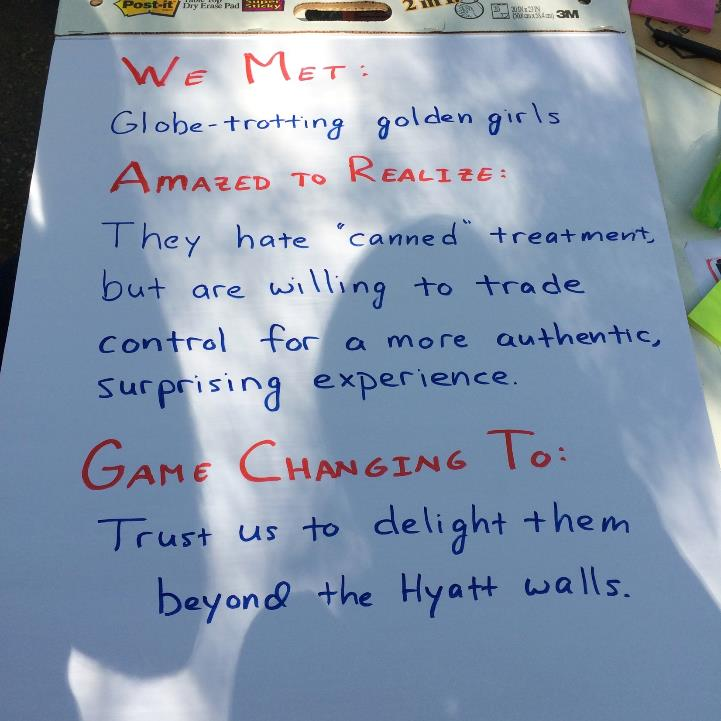 Post-it Dry Erase Pad Super Sticky 2 in 3M
WE MET:
Globe-trotting golden girls
AMAZED TO REALIZE:
They hate "canned" treatment,
but are willing to trade
control for a more authentic,
surprising experience.
GAME CHANGING TO:
Trust us to delight them
beyond the Hyatt walls.